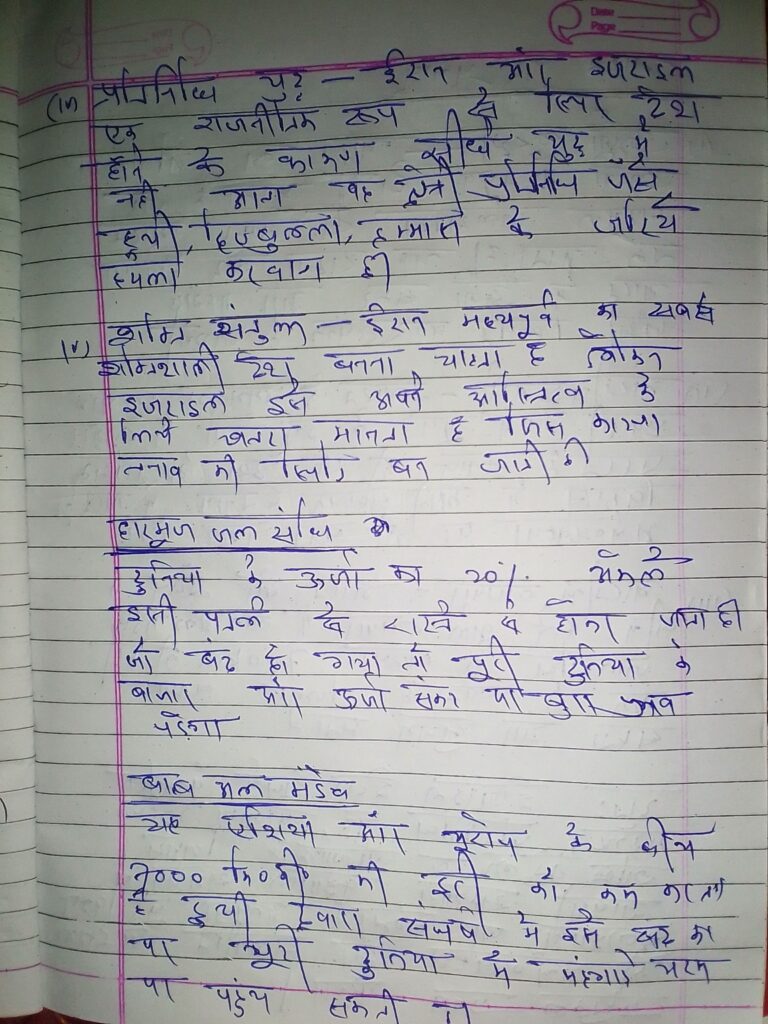 Date
Page
(iv) प्रतिनिधि युद्ध — ईरान और इजराइल
एक राजनीतिक रूप से स्थिर देश
होने के कारण सीधे युद्ध में
नही आता वह प्रतिनिधि जैसे
हूथी, हिजबुल्ला, हम्मास के जरिये
हमला करवाता है
(v) शक्ति संतुलन — ईरान मध्यपूर्व का सबसे
शक्तिशाली देश बनना चाहता है लेकिन
इजराइल इसे अपने अस्तित्व के
लिये खतरा मानता है जिस कारण
तनाव की स्थिति बन जाती है
हारमूज जल संधि
दुनिया के ऊर्जा का 20% अकेले
इसी पतली से रास्ते से होता जाता है
जो बंद हो गया तो पूरी दुनिया के
बाजार और ऊर्जा संकट पर बुरा
पड़ेगा
बाब अल मंडेब
यह एशिया और यूरोप के बीच
7000 कि०मी० की दूरी को कम करता
है हूथी द्वारा संघर्ष में इसे बंद कर
पर पूरी दुनिया में महंगाई चरम
पर पहुंच सकती है